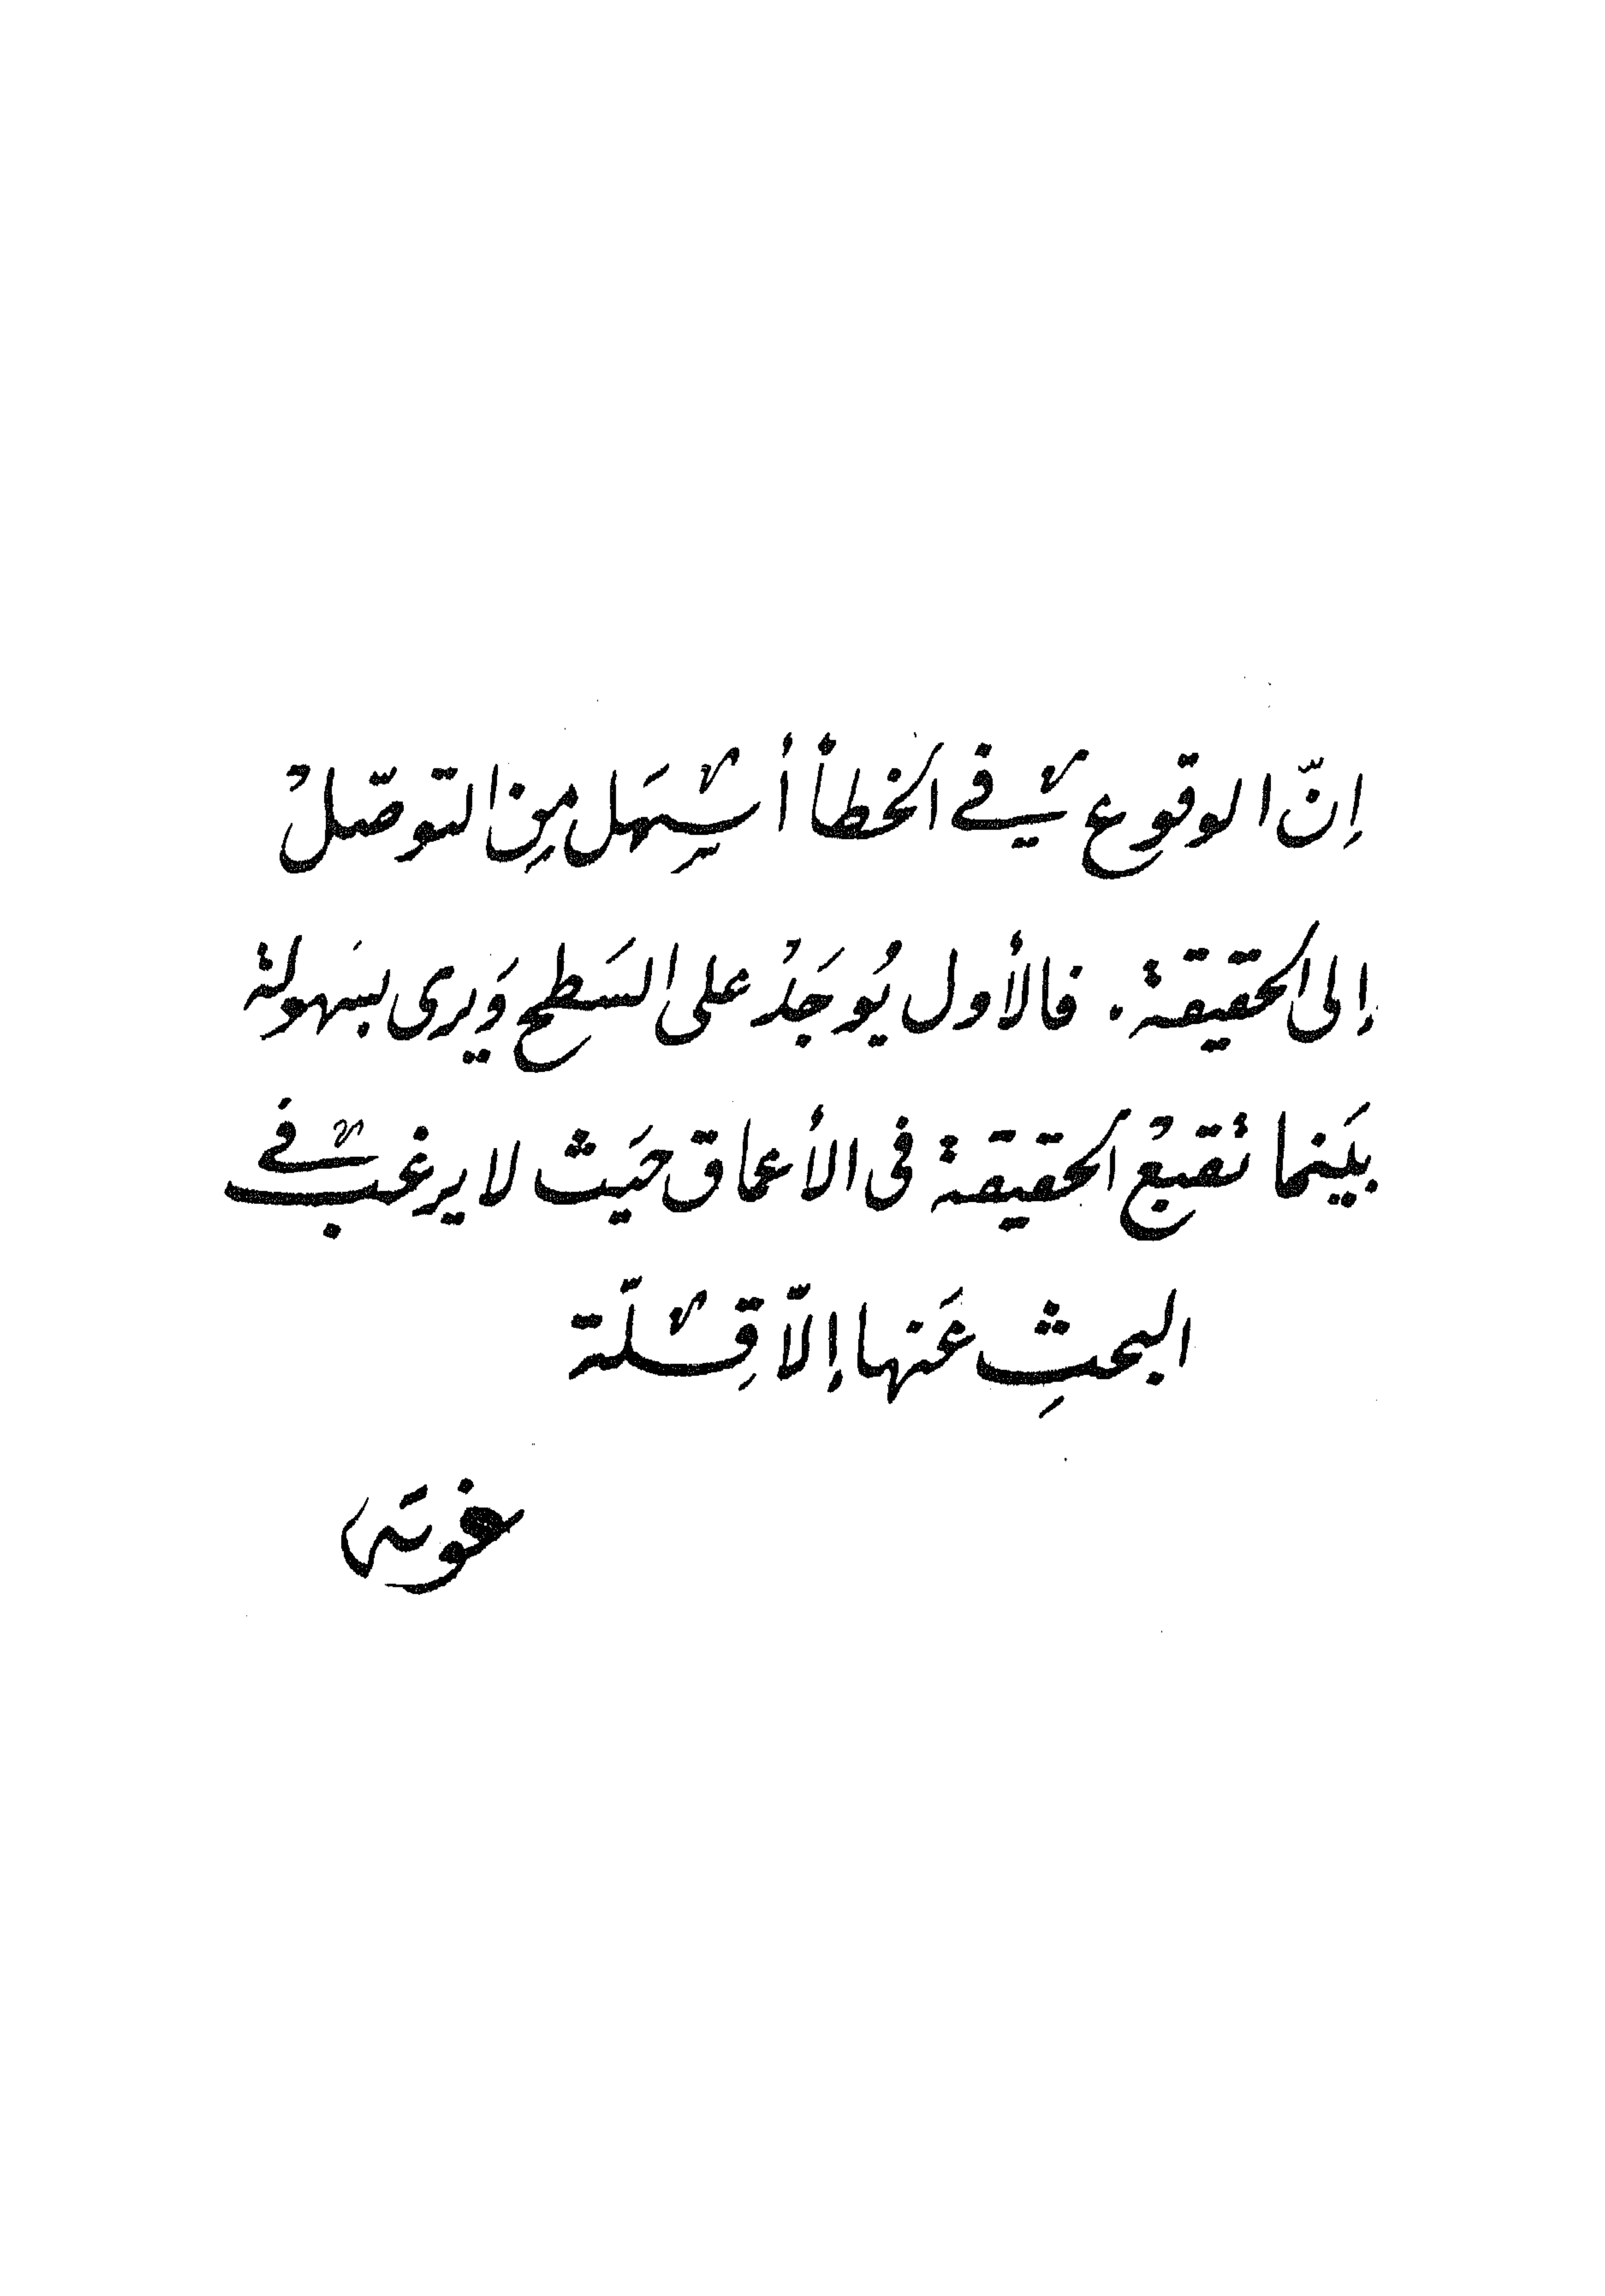 إنّ الوقوع في الخطأ أسهَل مِن التوصّل
إلى الحقيقة. فالأول يُوجَدُ على السَطح وَيرى بسَهولة
بيَنما تقبعُ الحقيقة في الأعماق حيَث لا يرغب في
البحثِ عَنها إلاّ قِلّة
غوته